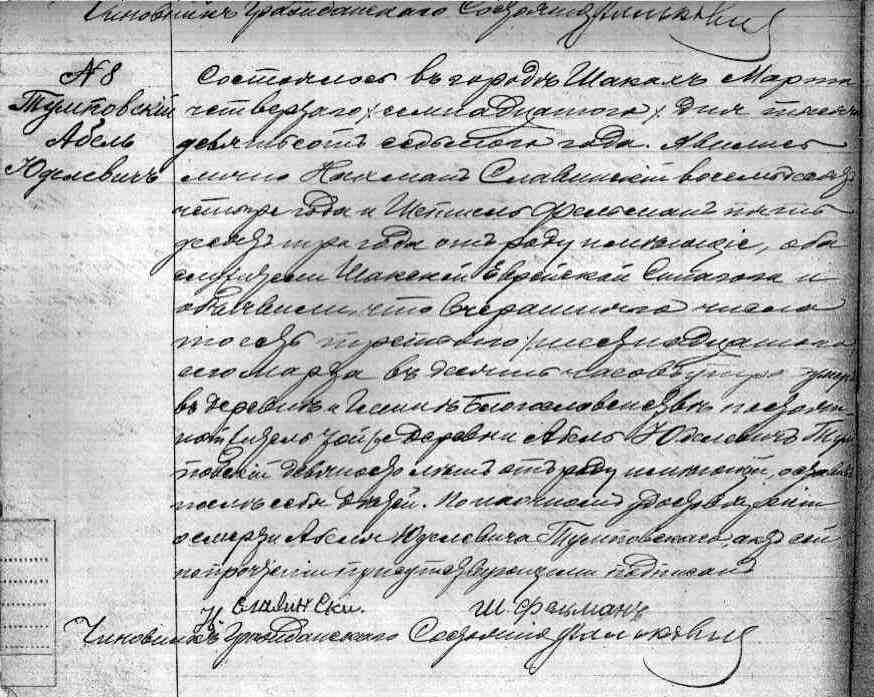 Чиновникъ Гражданскаго Состоянія
№ 8
Тумповскій
Абель
Юделевичъ
Состоялось въ городѣ Шакахъ Марта
четвертаго /семнадцатого/ дня тысяча
девятьсотъ седьмого года. Явились
лично Нахманъ Славинскій восемьдесятъ
четыре года и Шепшель Фельманъ пять
десятъ три года отъ роду имѣющіе, оба
служители Шакской Еврейской Синагоги и
объявили, что вчерашнего числа
то есть третьяго /шестнадцатого/
сего марта въ десять часовъ утра умеръ
въ деревнѣ и гминѣ постоян
ный житель той же деревни Абель Юделевичъ Тум
повскій девяносто лѣтъ отъ роду имѣющій, оставивъ
послѣ себя дѣтей. По наочномъ удостовѣреніи
о смерти Абеля Юделевича Тумповскаго, актъ сей
по прочтеніи присутствующими подписанъ
Н. Славински. Ш. Фельманъ
Чиновникъ Гражданскаго Состоянія